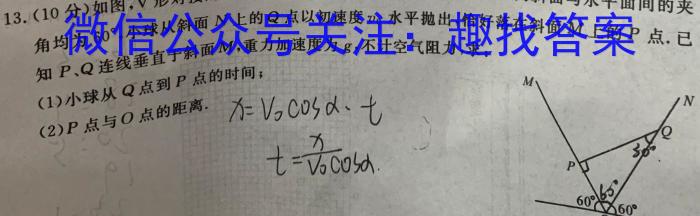 13.(10分)如图,V形对接 斜面与水平面间的夹
角均为60° 小球从斜面N上的Q点以初速度v₀水平抛出,恰好落在斜面M上的P点.已
微信公众号关注:趣找答案
知P、Q连线垂直于斜面M,重力加速度为g,不计空气阻力,
(1)小球从Q点到P点的时间;
(2)P点与O点的距离.
x=V₀cosα·t
t=x/V₀cosα.
M
N
Q
30°
P
60°
60°
60°